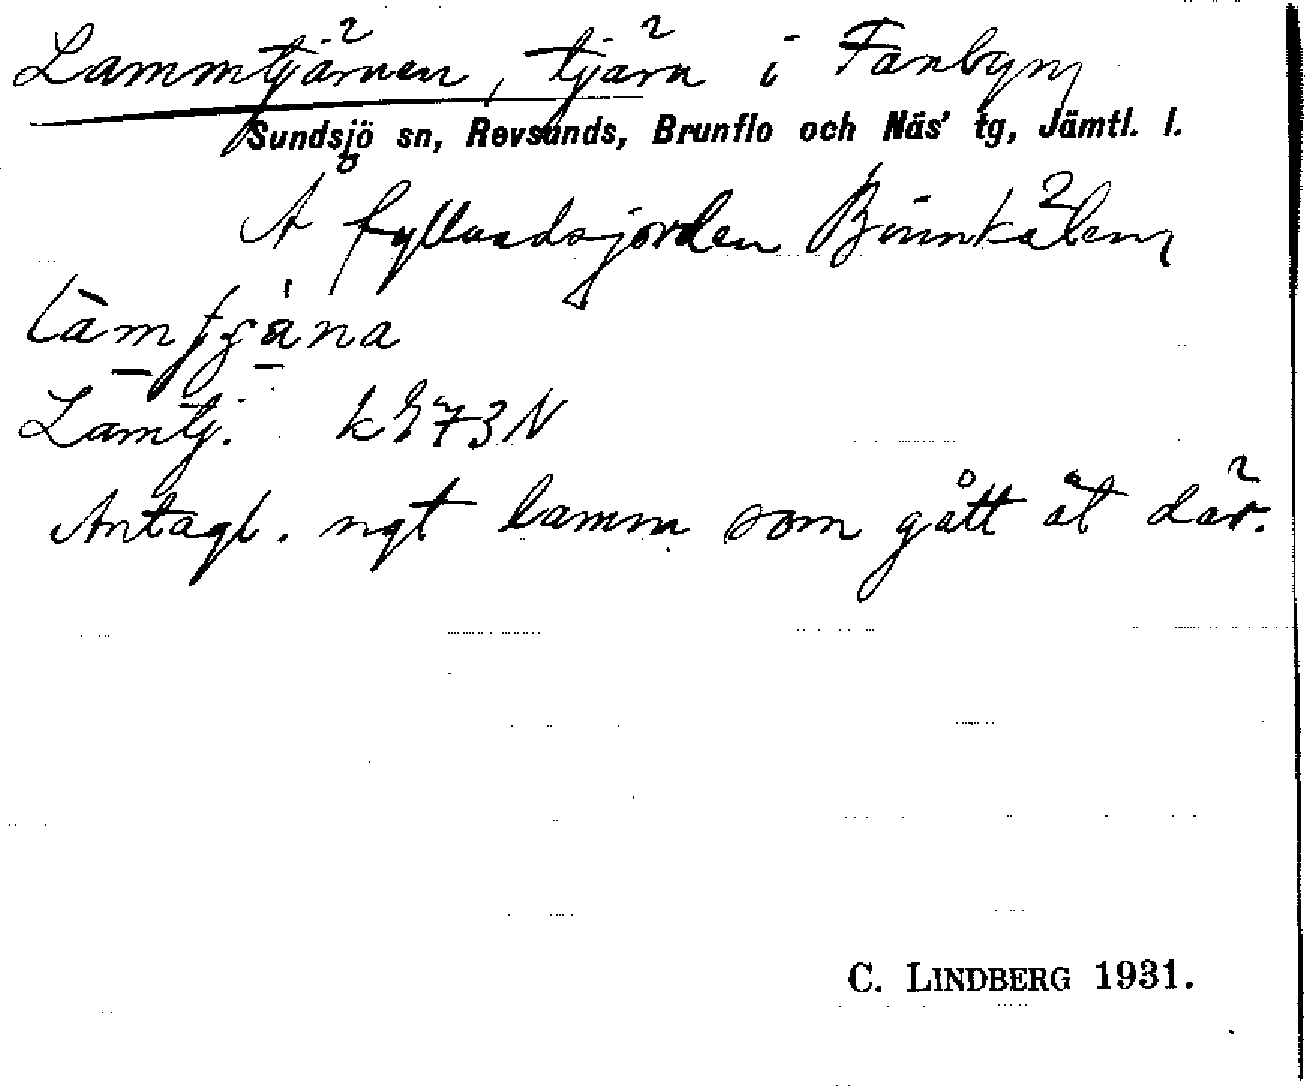 Lammtjärnen, tjärn i Fanbyn,
Sundsjö sn, Revsunds, Brunflo och Näs' tg, Jämtl. l.
Å fyllnadsjorden Binnkälen,
Lamtj. k 73 N
Antagl. ngt lamm som gått åt där.
C. LINDBERG 1931.